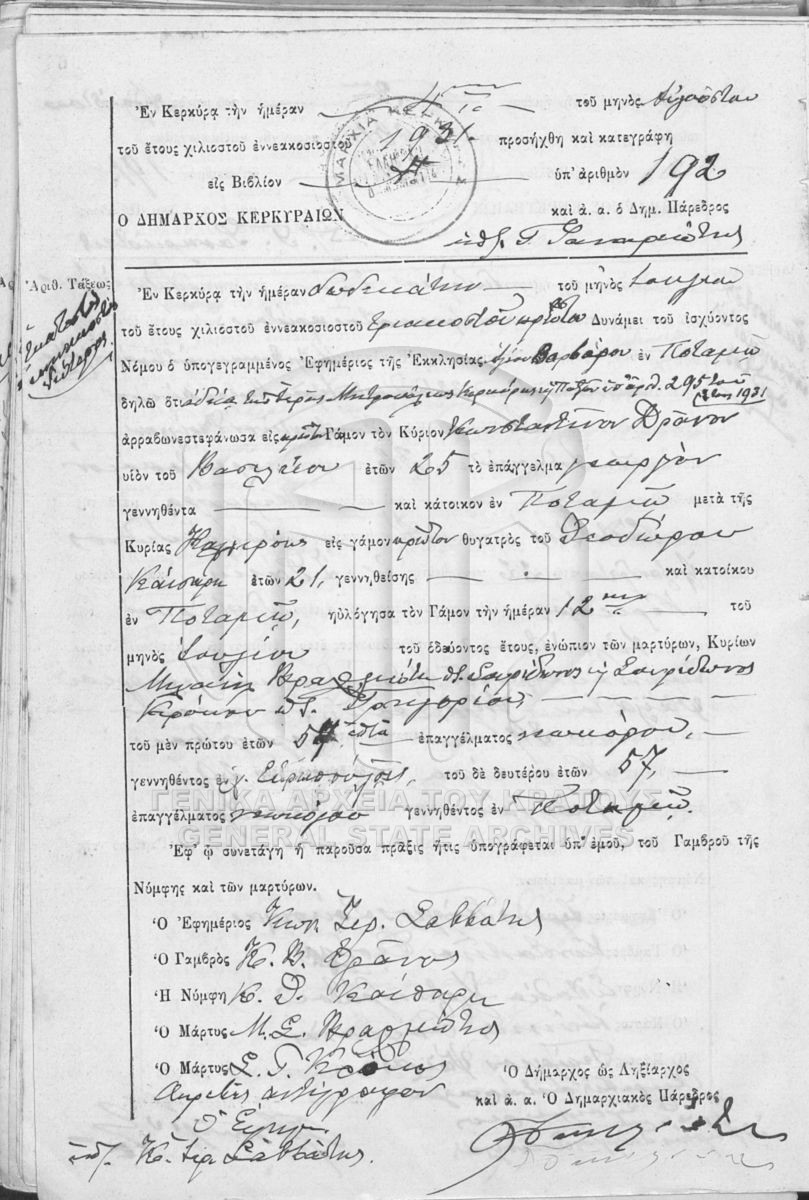 Ἐν Κερκύρᾳ τὴν ἡμέραν 4ην τοῦ μηνὸς Αὐγούστου
τοῦ ἔτους χιλιοστοῦ ἐννεακοσιοστοῦ 1931. προσήχθη καὶ κατεγράφη
εἰς Βιβλίον ὑπ' ἀριθμὸν 192
Ο ΔΗΜΑΡΧΟΣ ΚΕΡΚΥΡΑΙΩΝ καὶ ἀ. ἀ. ὁ Δημ. Πάρεδρος
Ἀριθ. Τάξεως
Ἐν Κερκύρᾳ τὴν ἡμέραν δωδεκάτην τοῦ μηνὸς Ἰουλίου
τοῦ ἔτους χιλιοστοῦ ἐννεακοσιοστοῦ τριακοστοῦ πρώτου Δυνάμει τοῦ ἰσχύοντος
Νόμου ὁ ὑπογεγραμμένος Ἐφημέριος τῆς Ἐκκλησίας Ἁγίου Βαρβάρου ἐν Ποταμῷ
δηλῶ ὅτι ἀδείᾳ τῆς Ἱερᾶς Μητροπόλεως Κερκύρας κ Παξῶν ὑπ' ἀρθ. 295 τοῦ
ἔτους 1931
ἀρραβωνεστεφάνωσα εἰς πρῶτον Γάμον τὸν Κύριον Κωνσταντῖνον Δρᾶνον
υἱὸν τοῦ Βασιλείου ἐτῶν 25 τὸ ἐπάγγελμα γεωργὸν
γεννηθέντα καὶ κάτοικον ἐν Ποταμῷ μετὰ τῆς
Κυρίας εἰς γάμον πρῶτον θυγατρὸς τοῦ Θεοδώρου
Καίσαρη ἐτῶν 21, γεννηθείσης καὶ κατοίκου
ἐν Ποταμῷ, ηὐλόγησα τὸν Γάμον τὴν ἡμέραν 12ην τοῦ
μηνὸς Ἰουλίου τοῦ ὁδεύοντος ἔτους, ἐνώπιον τῶν μαρτύρων, Κυρίων
Μιχαὴλ Σπυρίδωνος κ Σπυρίδωνος
Γρηγορίου
τοῦ μὲν πρώτου ἐτῶν 57 ἑπτὰ ἐπαγγέλματος
γεννηθέντος ἐν τοῦ δὲ δευτέρου ἐτῶν 57,
ἐπαγγέλματος γεννηθέντος ἐν Ποταμῷ.
ΓΕΝΙΚΑ ΑΡΧΕΙΑ ΤΟΥ ΚΡΑΤΟΥΣ
GENERAL STATE ARCHIVES
Ἐφ' ᾧ συνετάγη ἡ παροῦσα πρᾶξις ἥτις ὑπογράφεται ὑπ' ἐμοῦ, τοῦ Γαμβροῦ τῆς
Νύμφης καὶ τῶν μαρτύρων.
Ὁ Ἐφημέριος Κων. Ἱερ. Σαββάτης
Ὁ Γαμβρὸς Κ. Β. Δρᾶνος
Ἡ Νύμφη Κ. Θ. Καίσαρη
Ὁ Μάρτυς Μ. Σ.
Ὁ Μάρτυς Σ. Γ.
Ἀκριβὲς ἀντίγραφον
Ὁ Δήμαρχος ὡς Ληξίαρχος
καὶ ἀ. ἀ. Ὁ Δημαρχιακὸς Πάρεδρος
Ὁ Ἐφημ.
Κ. ἱερ. Σαββάτης.